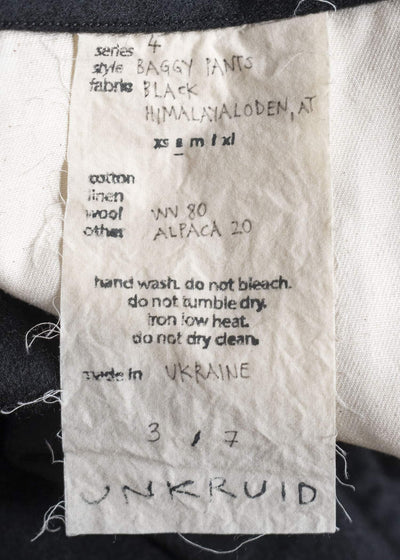 series 4
style BAGGY PANTS
fabric BLACK
HIMALAYALODEN, AT
xs s m l xl
cotton
linen
wool WV 80
other ALPACA 20
hand wash. do not bleach.
do not tumble dry.
iron low heat.
do not dry clean.
made in UKRAINE
3 / 7
UNKRUID